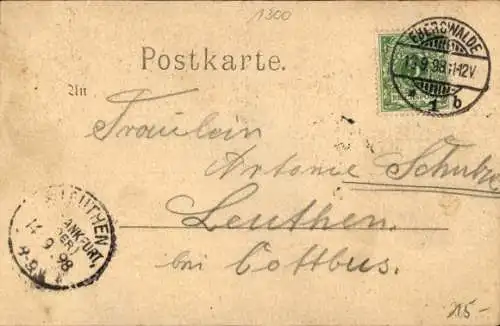 1300
EBERSWALDE
13 9 98 11-12V
* 1 b
Postkarte.
An
Fräulein
Antonie Schulze
Leuthen.
bei Cottbus.
LEUTHEN
FRANKFURT,
14 9 98
8-9V
15-